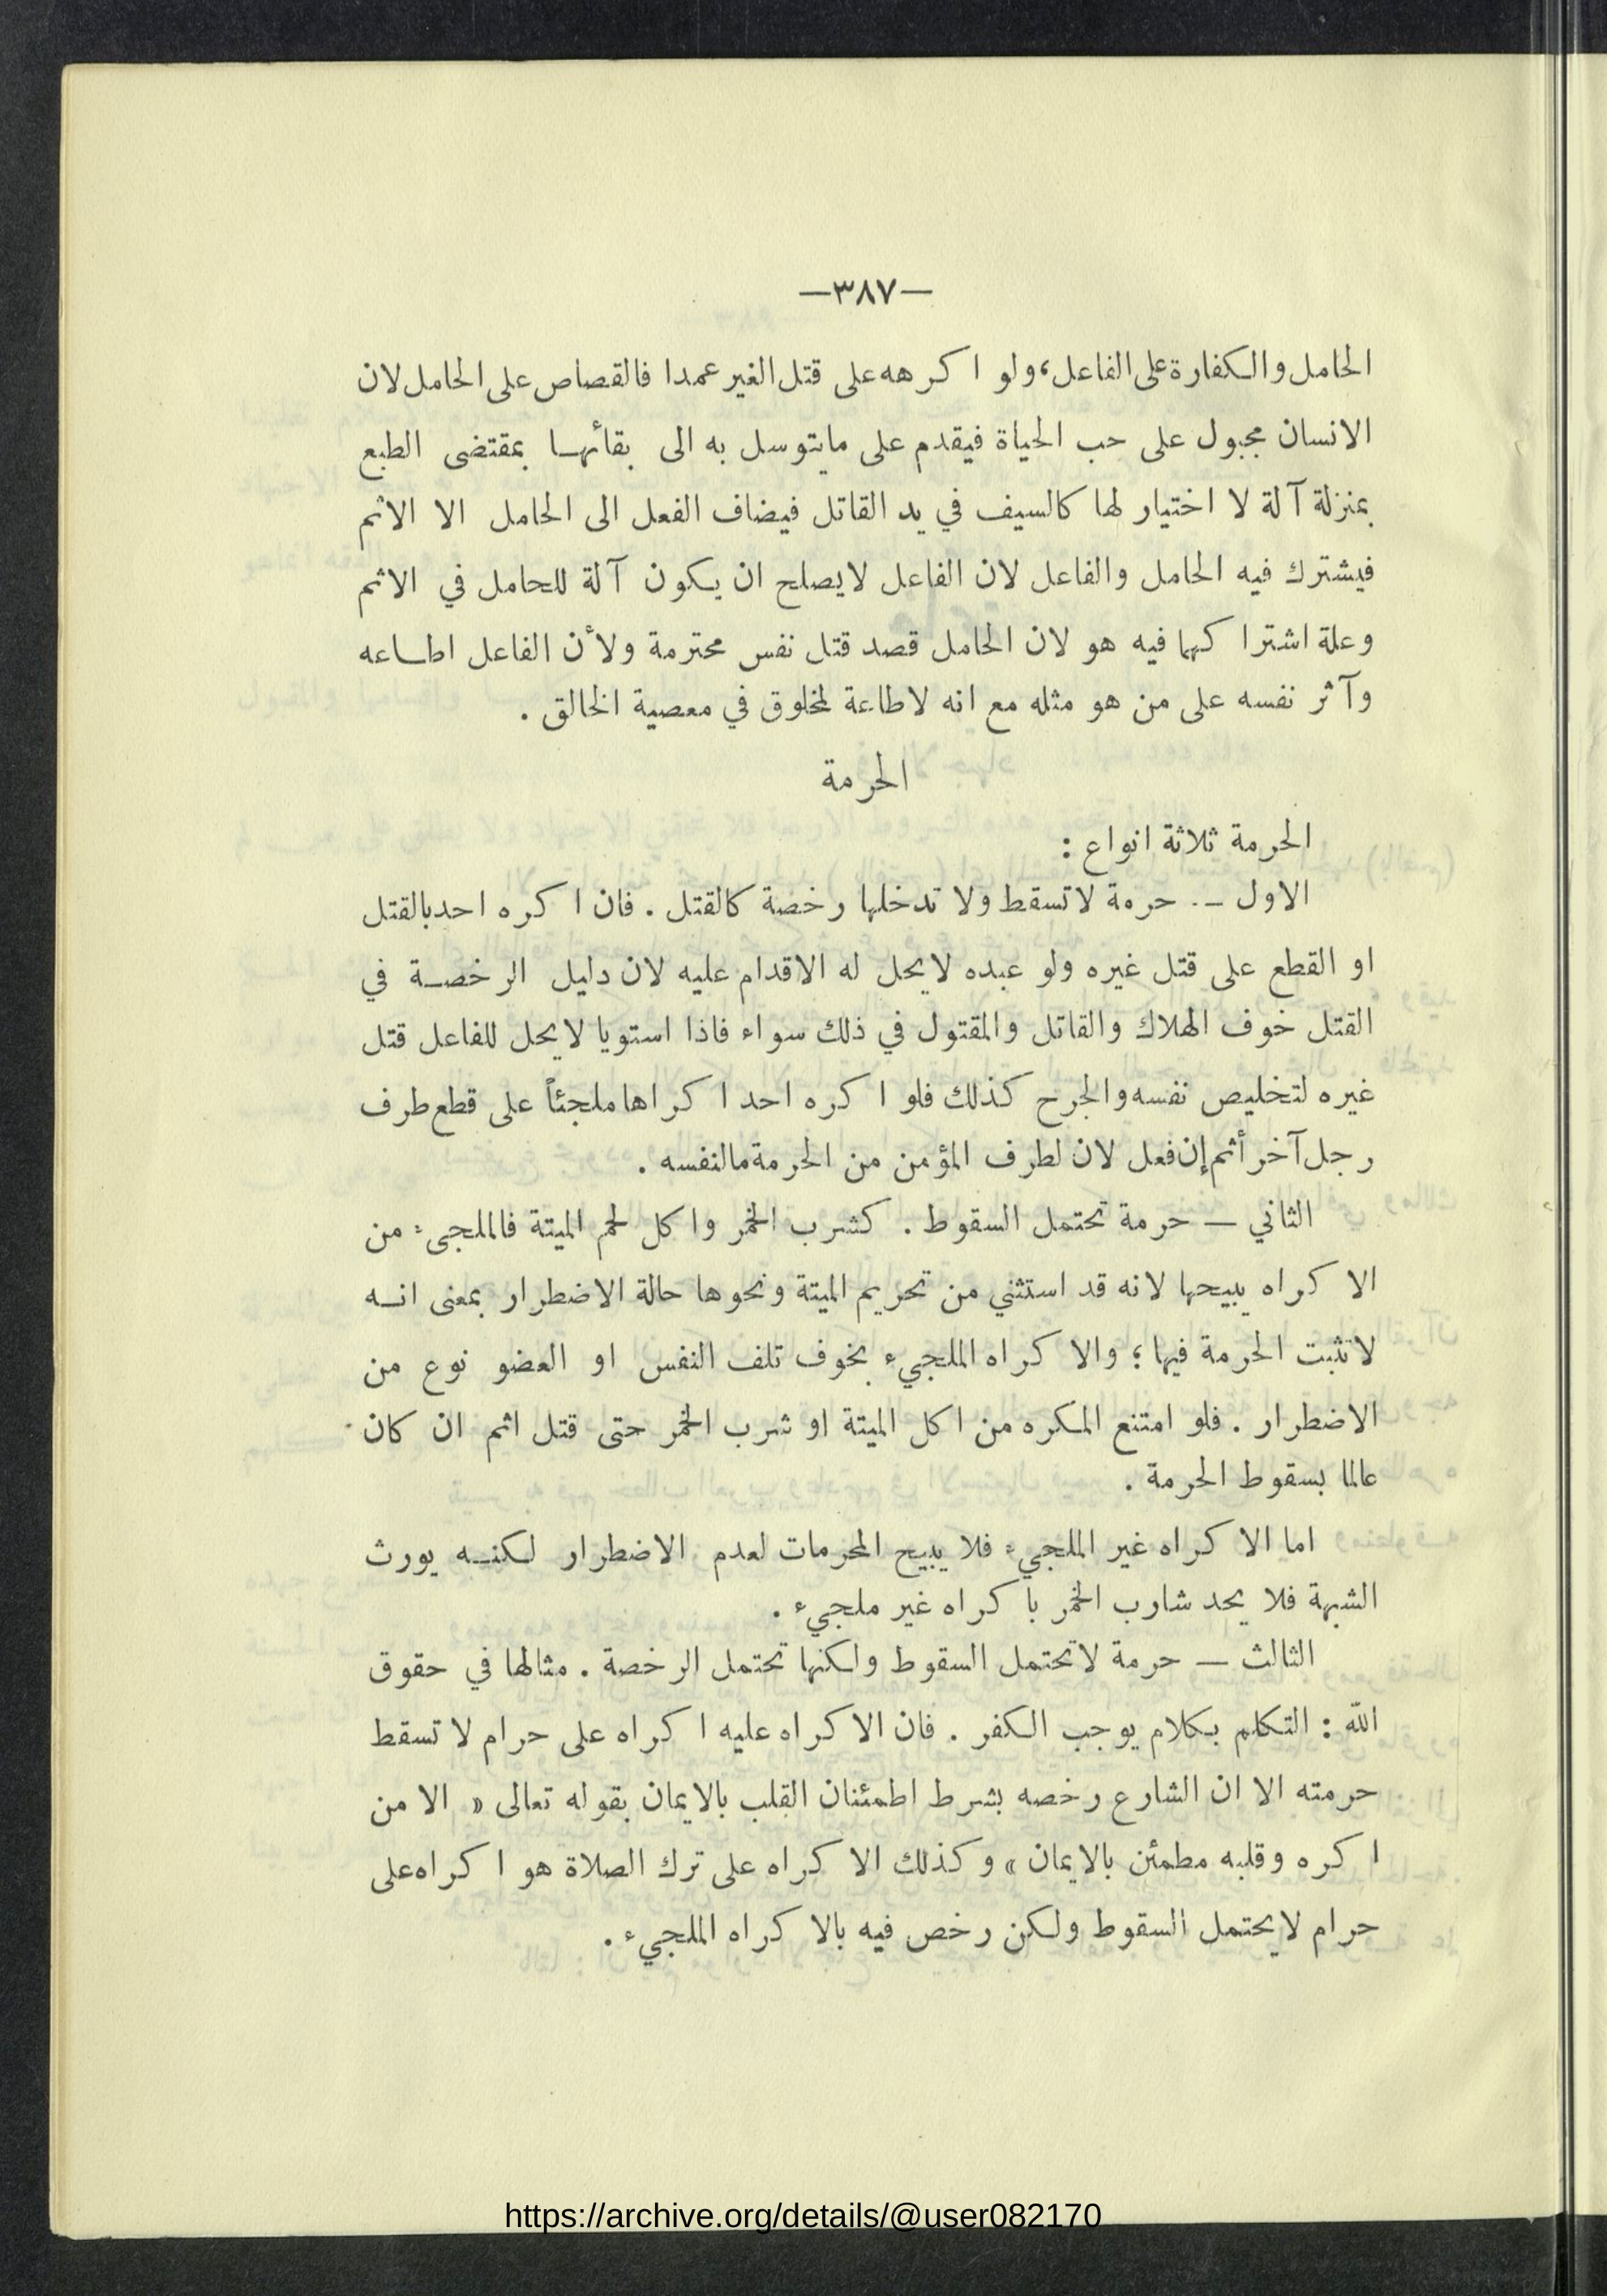 —٣٨٧—
الحامل والكفارة على الفاعل، ولو اكرهه على قتل الغير عمدا فالقصاص على الحامل لان
الانسان مجبول على حب الحياة فيقدم على مايتوسل به الى بقائها بمقتضى الطبع
بمنزلة آلة لا اختيار لها كالسيف في يد القاتل فيضاف الفعل الى الحامل الا الاثم
فيشترك فيه الحامل والفاعل لان الفاعل لايصلح ان يكون آلة للحامل في الاثم
وعلة اشتراكهما فيه هو لان الحامل قصد قتل نفس محترمة ولأن الفاعل اطاعه
وآثر نفسه على من هو مثله مع انه لاطاعة لمخلوق في معصية الخالق .
الحرمة
الحرمة ثلاثة انواع :
الاول — . حرمة لاتسقط ولا تدخلها رخصة كالقتل . فان اكره احد بالقتل
او القطع على قتل غيره ولو عبده لايحل له الاقدام عليه لان دليل الرخصة في
القتل خوف الهلاك والقاتل والمقتول في ذلك سواء فاذا استويا لايحل للفاعل قتل
غيره لتخليص نفسه والجرح كذلك فلو اكره احد اكراها ملجئاً على قطع طرف
رجل آخر أثم إن فعل لان لطرف المؤمن من الحرمة مالنفسه .
الثاني — حرمة تحتمل السقوط . كشرب الخمر واكل لحم الميتة فالملجىء من
الاكراه يبيحها لانه قد استثني من تحريم الميتة ونحوها حالة الاضطرار بمعنى انه
لاتثبت الحرمة فيها ؛ والاكراه الملجيء بخوف تلف النفس او العضو نوع من
الاضطرار . فلو امتنع المكره من اكل الميتة او شرب الخمر حتى قتل اثم ان كان
عالما بسقوط الحرمة .
اما الاكراه غير الملجيء فلا يبيح المحرمات لعدم الاضطرار لكنه يورث
الشبهة فلا يحد شارب الخمر باكراه غير ملجيء .
الثالث — حرمة لاتحتمل السقوط ولكنها تحتمل الرخصة . مثالها في حقوق
الله : التكلم بكلام يوجب الكفر . فان الاكراه عليه اكراه على حرام لاتسقط
حرمته الا ان الشارع رخصه بشرط اطمئنان القلب بالايمان بقوله تعالى « الا من
اكره وقلبه مطمئن بالايمان » وكذلك الاكراه على ترك الصلاة هو اكراه على
حرام لايحتمل السقوط ولكن رخص فيه بالاكراه الملجيء .
https://archive.org/details/@user082170